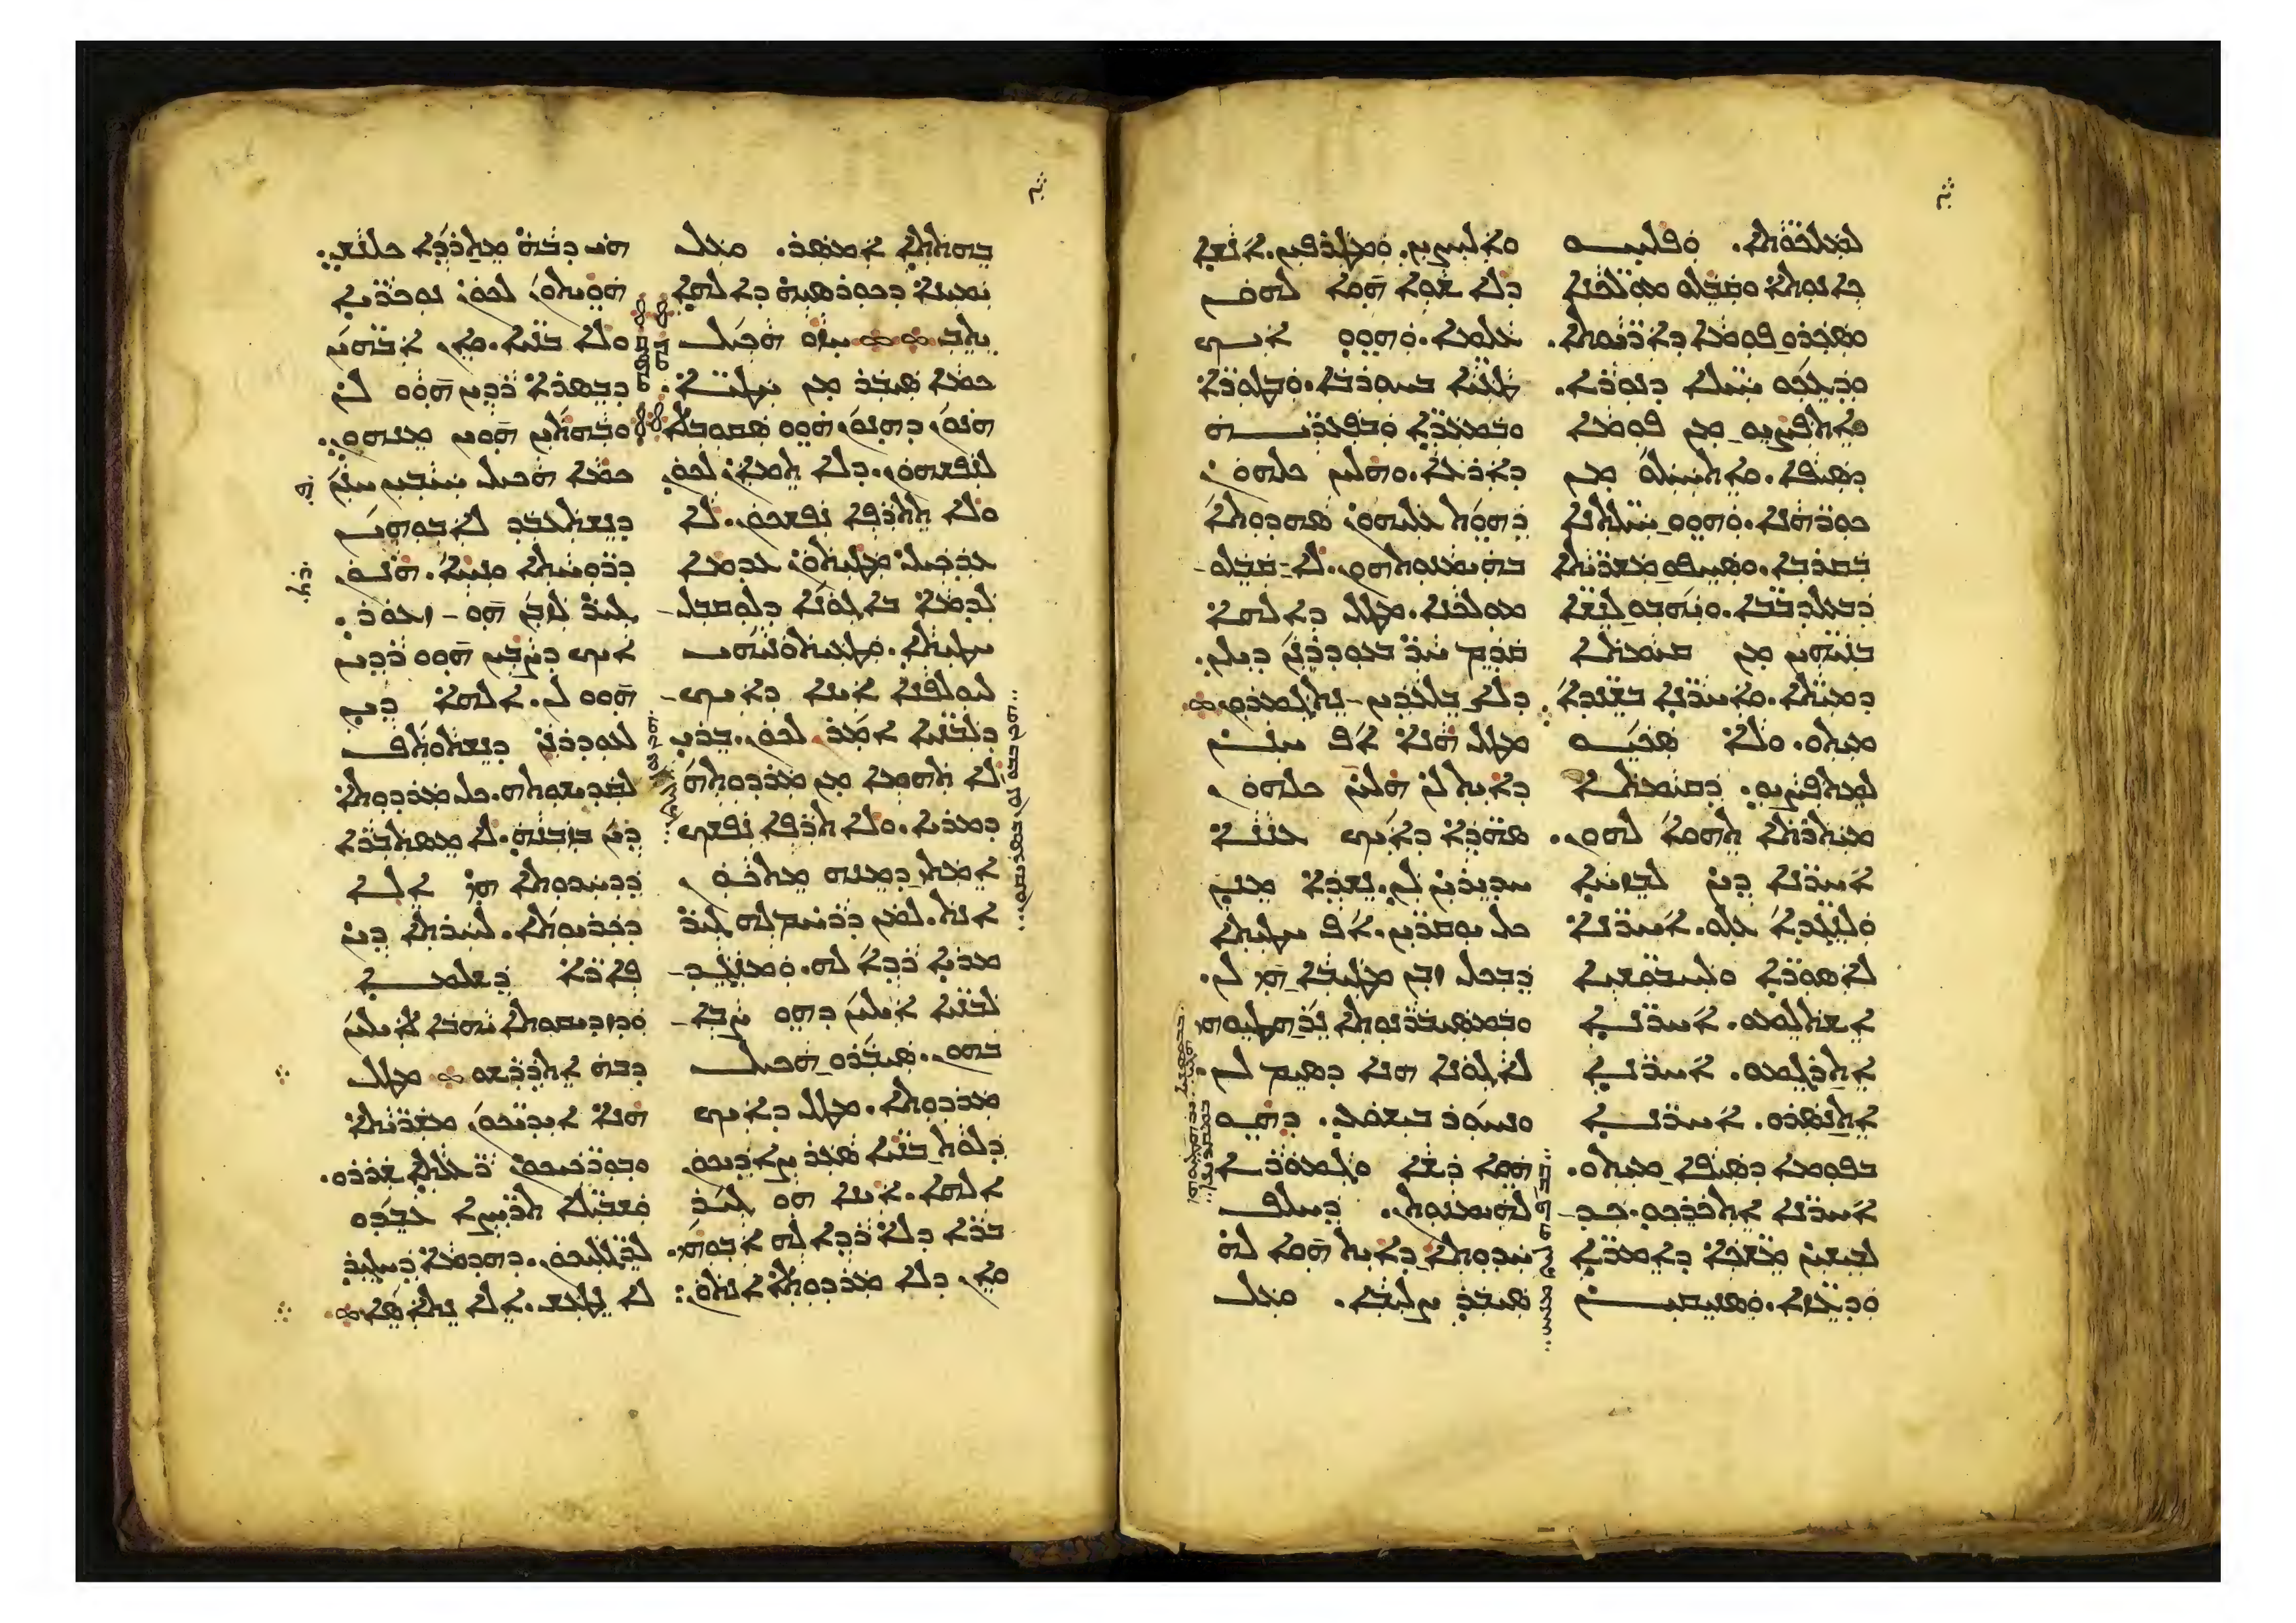 ܠܡܠܟܘ̈ܬܐ. ܘܦܠܚܘ
ܟܐܢܘܬܐ ܘܩܒܠܘ ܡܘܠܟܢܐ
ܘܣܟܪܘ ܦܘܡܐ ܕܐܪ̈ܝܘܬܐ.
ܘܕܥܟܘ ܚܝܠܐ ܕܢܘܪܐ.
ܘܐܬܦܨܝܘ ܡܢ ܦܘܡܐ
ܕܣܝܦܐ. ܘܐܬܚܝܠܘ ܡܢ
ܟܘܪܗܢܐ. ܘܗܘܘ ܚܝܠܬܢܐ
ܒܩܪܒܐ. ܘܣܚܦܘ ܡܫܪ̈ܝܬܐ
ܕܒܥܠܕܒܒ̈ܐ. ܘܝܗܒܘ ܠܢܫ̈ܐ
ܒܢܝ̈ܗܝܢ ܡܢ ܩܝܡܬܐ
ܕܡܝ̈ܬܐ. ܘܐܚܪ̈ܢܐ ܒܫܢܕ̈ܐ
ܡܝܬܘ. ܘܠܐ ܣܟܝܘ
ܠܡܬܦܨܝܘ. ܕܩܝܡܬܐ
ܡܝܬܪܬܐ ܬܗܘܐ ܠܗܘܢ.
ܐܚܪ̈ܢܐ ܕܝܢ ܠܒܙܚ̈ܐ
ܘܠܢܓܕ̈ܐ ܥܠܘ. ܐܚܪ̈ܢܐ
ܠܐܣܘܪ̈ܐ ܘܠܚܒܘܫܝ̈ܐ
ܐܫܬܠܡܘ. ܐܚܪ̈ܢܐ
ܐܬܪܓܡܘ. ܐܚܪ̈ܢܐ
ܐܬܢܣܪܘ. ܐܚܪ̈ܢܐ
ܒܦܘܡܐ ܕܣܝܦܐ ܡܝܬܘ.
ܐܚܪ̈ܢܐ ܐܬܟܪܟܘ ܟܕ
ܠܒܝܫܝܢ ܡܫ̈ܟܐ ܕܐܡܪ̈ܐ
ܘܕܥܙ̈ܐ. ܘܣܢܝܩܝܢ
ܘܐܠܝܨܝܢ. ܘܡܛܪܦܝܢ. ܐܢܫܐ
ܕܠܐ ܫܘܐ ܗܘܐ ܠܗܘܢ
ܥܠܡܐ. ܘܗܘܘ ܐܝܟ
ܛܥ̈ܝܐ ܒܚܘܪܒܐ. ܘܒܛܘܪ̈ܐ
ܘܒܡܥܪ̈ܐ ܘܒܦܥܪ̈ܝܗ
ܕܐܪܥܐ. ܘܗܠܝܢ ܟܠܗܘܢ
ܕܗܘܬ ܥܠܝܗܘܢ ܣܗܕܘܬܐ
ܒܗܝܡܢܘܬܗܘܢ. ܠܐ ܩܒܠܘ
ܡܘܠܟܢܐ. ܡܛܠ ܕܐܠܗܐ
ܩܕܡ ܚܪ ܒܥܘܕܪܢܢ ܕܝܠܢ.
ܕܠܐ ܒܠܥܕܝܢ ܢܬܓܡܪܘܢ
ܡܛܠ ܗܢܐ ܐܦ ܚܢܢ
ܕܐܝܬ ܠܢ ܗܠܝܢ ܟܠܗܘܢ
ܣܗܕ̈ܐ ܕܐܝܟ ܥܢܢܐ
ܚܕܝܪܝܢ ܠܢ. ܢܫܕܐ ܡܢܢ
ܟܠ ܝܘܩܪ̈ܝܢ. ܐܦ ܚܛܝܬܐ
ܕܒܟܠ ܙܒܢ ܡܛܝܒܐ ܗܝ ܠܢ.
ܘܒܡܣܝܒܪܢܘܬܐ ܢܪܗܛܝܘܗܝ
ܠܐܓܘܢܐ ܗܢܐ ܕܣܝܡ ܠܢ.
ܘܢܚܘܪ ܒܝܫܘܥ. ܕܗܘ
ܗܘܐ ܪܫܐ ܘܓܡܘܪܐ
ܠܗܝܡܢܘܬܢ. ܕܚܠܦ
ܚܕܘܬܐ ܕܐܝܬ ܗܘܐ ܠܗ
ܣܝܒܪ ܨܠܝܒܐ. ܘܥܠ
ܒܗܬܬܐ ܐܡܣܪ. ܘܥܠ
ܝܡܝܢܐ ܕܟܘܪܣܝܗ ܕܐܠܗܐ
ܝܬܒ ܚܙܘ ܗܟܝܠ
ܟܡܐ ܣܝܒܪ ܡܢ ܚܛܝ̈ܐ.
ܗܢܘܢ ܕܗܢܘܢ ܗܘܘ ܣܩܘܒܠܐ
ܠܢܦܫܗܘܢ. ܕܠܐ ܬܡܐܢ ܠܟܘܢ
ܘܠܐ ܬܬܪܦܐ ܢܦܫܟܘܢ. ܠܐ
ܥܕܟܝܠ ܡܛܝܬܘܢ ܥܕܡܐ
ܠܕܡܐ ܒܐܓܘܢܐ ܕܠܘܩܒܠ
ܚܛܝܬܐ. ܘܛܥܝܬܘܢܝܗܝ
ܠܝܘܠܦܢܐ ܐܝܢܐ ܕܐܝܟ
ܕܠܒܢܝ̈ܐ ܐܡܪ ܠܟܘܢ. ܒܪܝ
ܠܐ ܬܗܡܐ ܡܢ ܡܪܕܘܬܗ
ܕܡܪܝܐ. ܘܠܐ ܬܬܪܦܐ ܢܦܫܟ
ܐܡܬܝ ܕܡܢܗ ܡܬܟܣ
ܐܢܬ. ܠܡܢ ܕܪܚܡ ܠܗ ܓܝܪ
ܡܪܝܐ ܪܕܐ ܠܗ. ܘܡܢܓܕ
ܠܒܢܝ̈ܐ ܐܝܠܝܢ ܕܗܘ ܨܒܐ
ܒܗܘܢ. ܣܝܒܪܘ ܗܟܝܠ
ܡܪܕܘܬܐ. ܡܛܠ ܕܐܝܟ
ܕܠܘܬ ܒܢܝ̈ܐ ܣܥܪ ܨܐܕܝܟܘܢ
ܐܠܗܐ. ܐܝܢܐ ܗܘ ܓܝܪ
ܒܪܐ ܕܠܐ ܪܕܐ ܠܗ ܐܒܘܗܝ.
ܘܐܢ ܕܠܐ ܡܪܕܘܬܐ ܐܢܬܘܢ
ܗܝ ܕܒܗ ܡܬܪܕܐ ܟܠܢܫ.
ܗܘܝܬܘܢ ܠܟܘܢ ܢܘܟܪ̈ܝܐ
ܘܠܐ ܒܢܝ̈ܐ. ܘܐܢ ܐܒܗ̈ܝܢ
ܕܒܣܪܐ ܪܕܝܢ ܗܘܘ ܠܢ
ܘܒܗܬܝܢ ܗܘܝܢ ܡܢܗܘܢ.
ܟܡܐ ܗܟܝܠ ܚܝܒܝܢ ܚܢܢ
ܕܢܫܬܥܒܕ ܠܐܒܘܗܝ
ܕܪ̈ܘܚܬܐ ܘܢܚܐ. ܗܢܘܢ
ܓܝܪ ܠܙܒܢ ܗܘ ܙܥܘܪ.
ܐܝܟ ܕܨܒܝܢ ܗܘܘ ܪܕܝܢ
ܗܘܘ ܠܢ. ܐܠܗܐ ܕܝܢ
ܠܥܘܕܪܢܢ ܕܢܫܬܘܬܦ
ܠܩܕܝܫܘܬܗ. ܟܠ ܡܪܕܘܬܐ
ܕܝܢ ܒܙܒܢܗ. ܠܐ ܡܣܬܒܪܐ
ܕܕܚܕܘܬܐ ܗܝ ܐܠܐ
ܕܟܪܝܘܬܐ. ܠܚܪܬܐ ܕܝܢ
ܦܐܪ̈ܐ ܕܫܠܡܐ
ܘܕܙܕܝܩܘܬܐ ܝܗܒܐ ܠܐܝܠܝܢ
ܕܒܗ ܐܬܕܪܫܘ ܡܛܠ
ܗܢܐ ܐܝܕܝ̈ܟܘܢ ܡܫܪ̈ܝܬܐ
ܘܒܘܪ̈ܟܝܟܘܢ ܪ̈ܥܠܬܐ ܫܪܪܘ.
ܘܫܒܝ̈ܠܐ ܬܪ̈ܝܨܐ ܥܒܕܘ
ܠܪ̈ܓܠܝܟܘܢ. ܕܗܕܡܐ ܕܚܓܝܪ
ܠܐ ܢܛܥܐ. ܐܠܐ ܢܬܐܣܐ